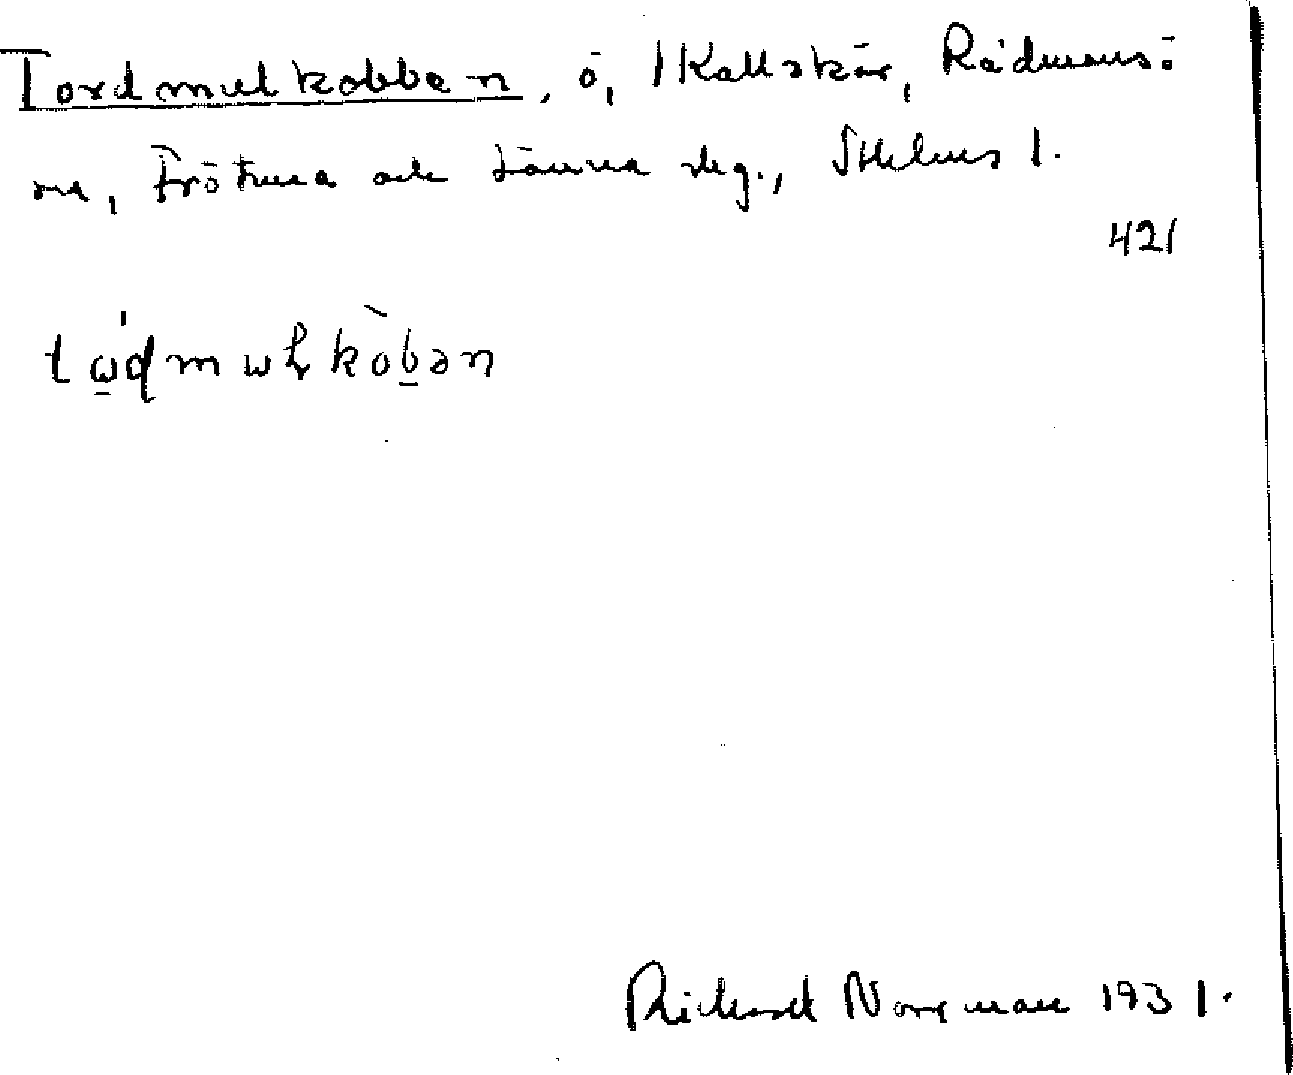 Tordmulkobben, ö, 1 Kallskär, Rådmansö
sn, Frötuna och Länna skg., Sthlms l.
421
tώ̲ɖmuɫkòb̲ən
Richard Norrman 1931.